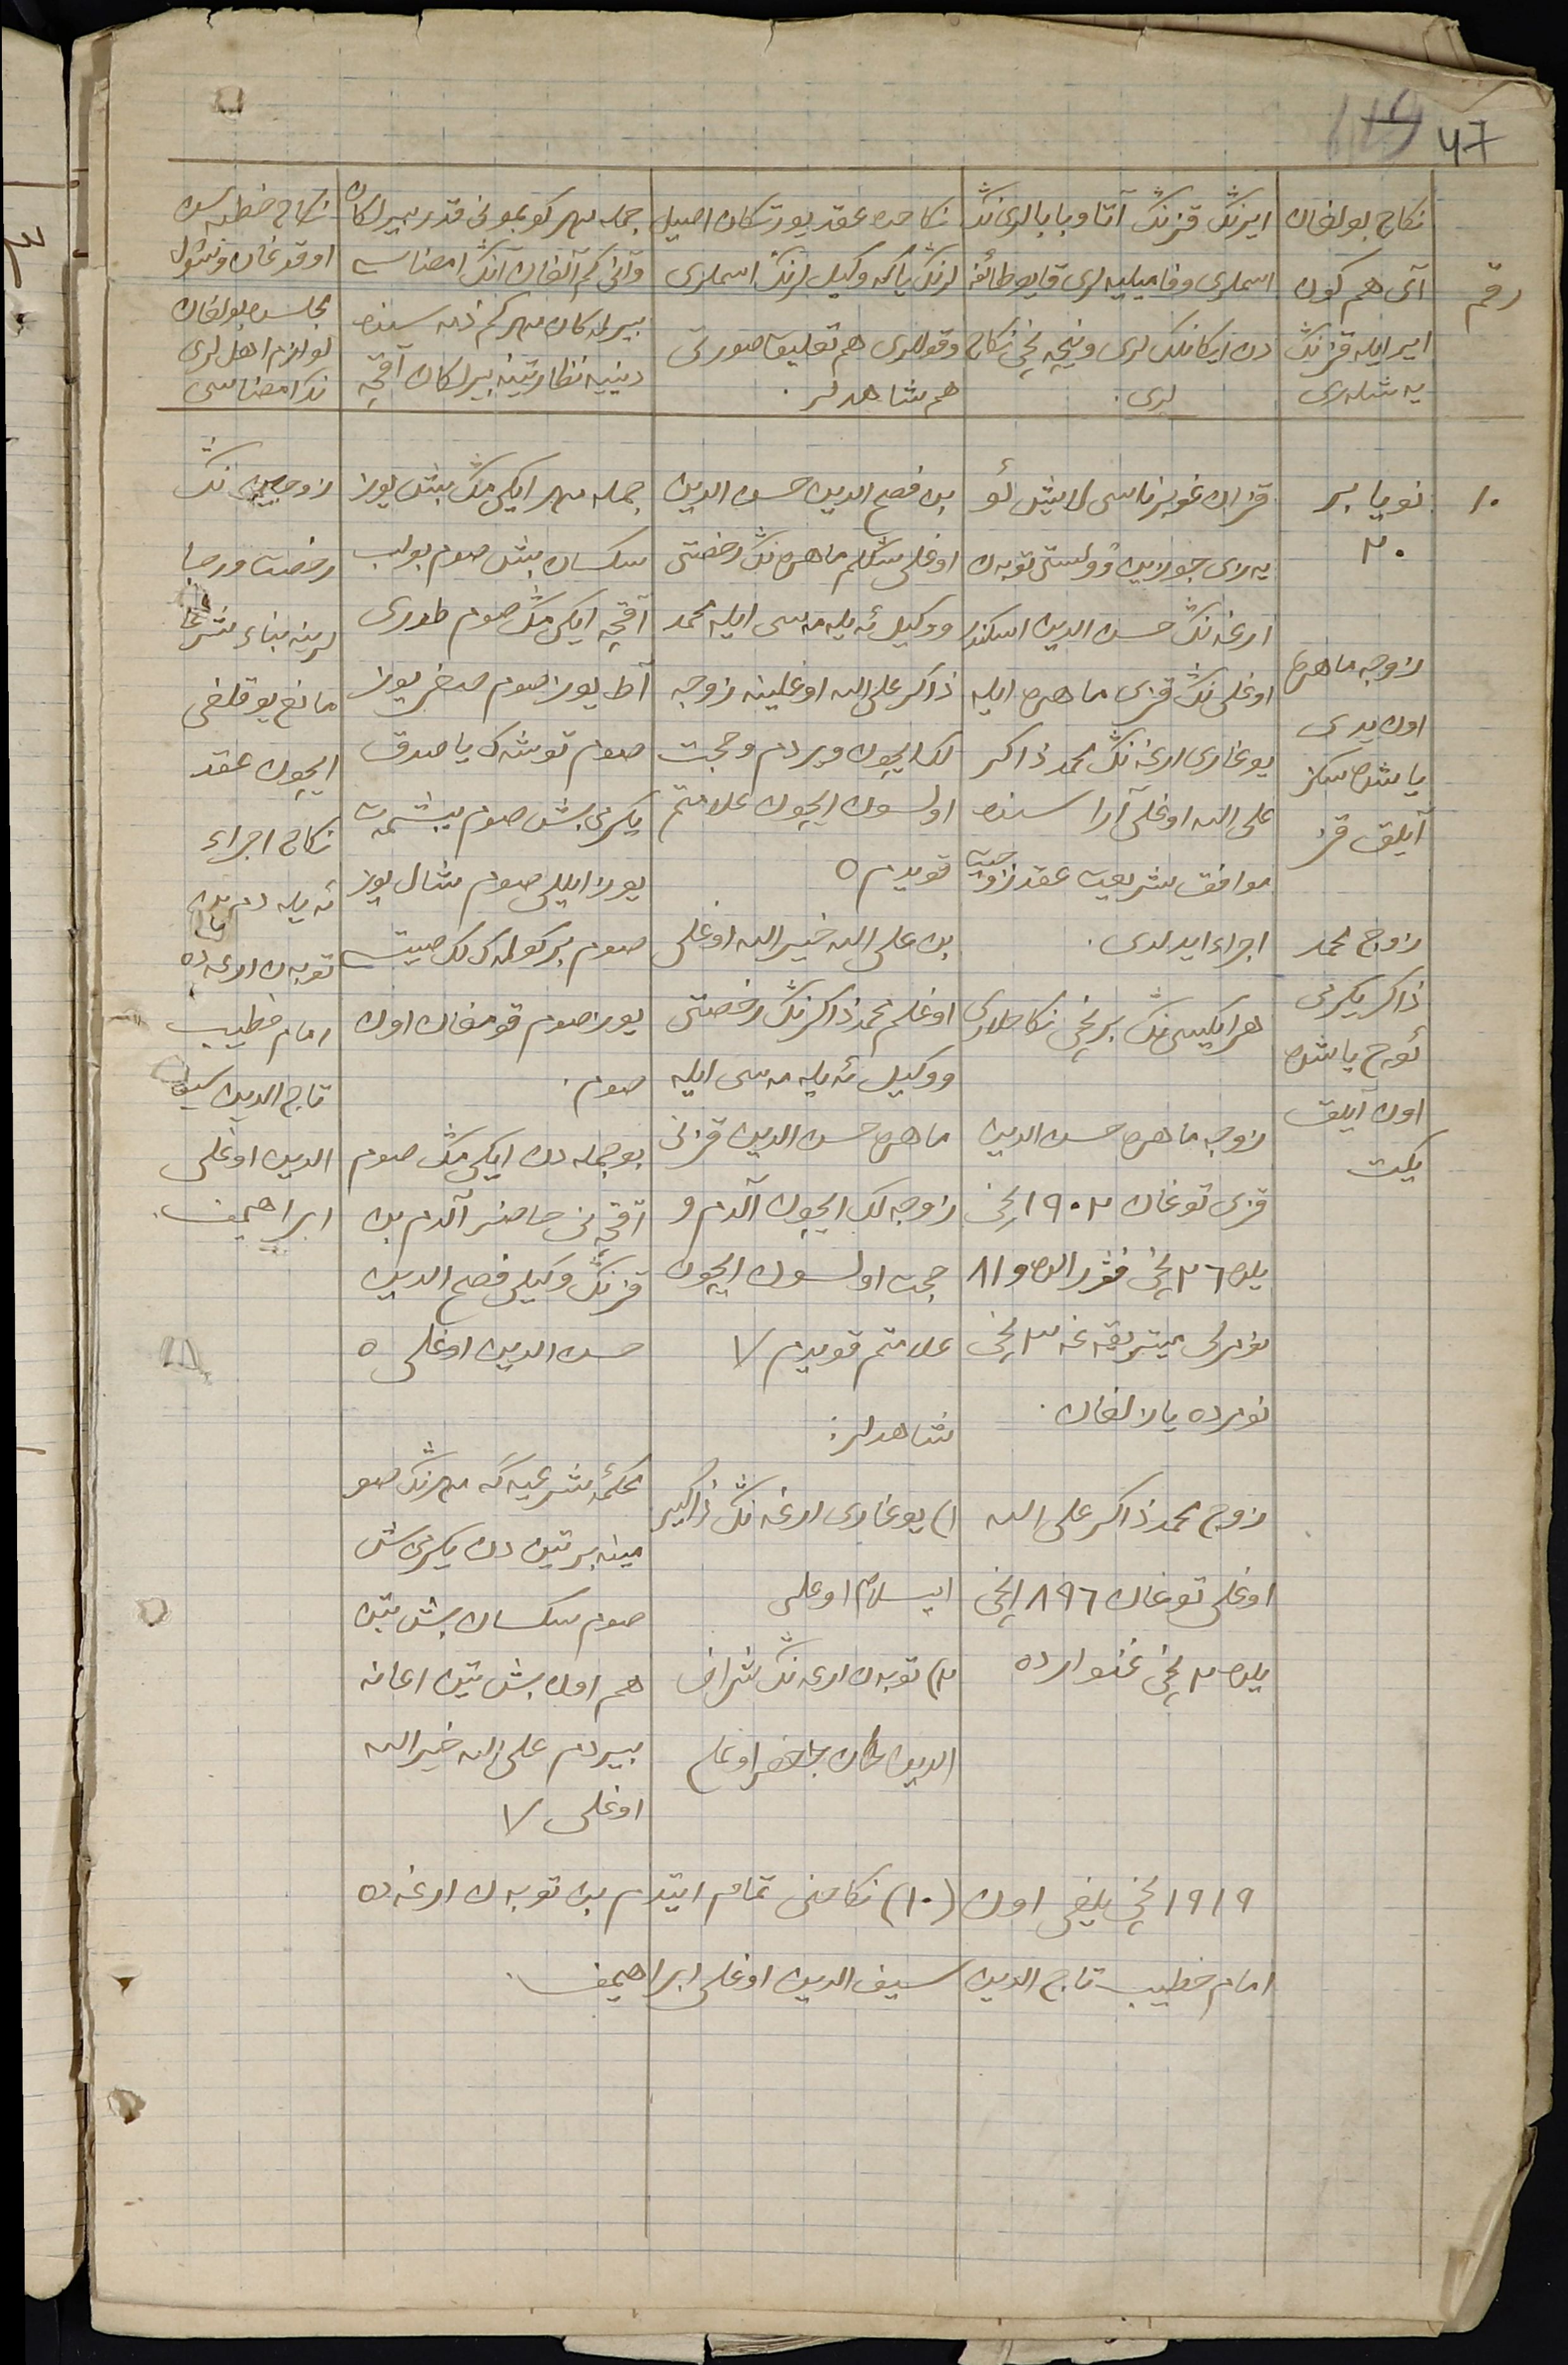 47
رقم
نكاح بولغان
آی هم كون
ایر ایله قزنڭ
یه شلەری
ایرنڭ قزنڭ آتا و بابالری نڭ
اسملری وفامیلیه لری قایو طائفه
دن ایكانلك لری ونیچه نچی نكاح
لری.
نكاحده عقد یورتكان اصیل
لرنڭ یاكه وكیل لرنڭ اسملری
وقوللری هم تعلیق صورتی
هم شاهدلر.
جمله مهر كوبمونی قدر بیرلكان
وآنی كم آلغان آنڭ امضاسی
بیرلماكان مهر كم ذمه سنده
دینیه نظارتینه بیرلكان آقچه
نكاح خطبه سن
اوقوغان وشول
مجلسده بولغان
لوازم اهل لری
نڭ امضاسی
۱۰
نویابر
۲۰
زوجه ماهره
اون یدی
یاشده سكز
آیلق قز
زوج محمد
ذاكر یكرمی
ئوچ یاشده
اون آیلق
یكت
قزان غوبرناسی لایش ئو
یه زی جورایین وولستی توبەن
ارغه نڭ حسن الدین اسكندر
اوغلی نڭ قزی ماهره ایله
یوغاری ارغه نڭ محمد ذاكر
علی الله اوغلی آراسنده
موافق شریعت عقد زوجیت
اجراء ایدلدی.
هر ایكیسی نڭ برنچی نكاحلاری
زوجه ماهره حسن الدین
قزی توغان ۱۹۰۲ نچی
یلده ۲۶ نچی فیورالده و ۸۱
نومرلی میتریقه غه ۲ نچی
نومرده یازلغان.
زوج محمد ذاكر علی الله
اوغلی توغان ۱۸۹۶ نچی
یلده ۲ نچی غنواردە
بن فصح الدین حسن الدین
اوغلی سڭلم ماهره نڭ رخصتی
ووكیل ئه یله مه سی ایله محمد
ذاكر علی الله اوغلینه زوجه
لك ایچون ویردم وحجت
اولسون ایچون علامتم
قویدم ٥
بن علی الله خیر الله اوغلی
اوغلم محمد ذاكرنڭ رخصتی
ووكیل ئه یله مه سی ایله
ماهره حسن الدین قزنی
زوجه لك ایچون آلدم و
حجت اولسون ایچون
علامتم قویدم ۱/
شاهدلر:
۱) یوغاری ارغه نڭ ذاكیر
ایسلام اوغلی
۲) توبەن ارغه نڭ شراف
الدین
جمله مهر ایكی مڭ بیش یوز
سكسان بیش صوم بولب
آقچه ایكی مڭ صوم طوری
آط یوز صوم صغر یوز
صوم توشەك یاصدق
یكرمی بش صوم بیشمەت
یوز ایللی صوم شال یوز
صوم بر كولمەك لك صیتسە
یوز صوم قومغان اون
صوم.
بو جمله دن ایكی مڭ صوم
آقچه نی حاضر آلدم بن
قزنڭ وكیلی فصح الدین
حسن الدین اوغلی ٥
محكمۀ شرعیه گه مهرنڭ صو
مینه بر تین دن یكرمی بش
صوم سكسان بش تین
هم اون بش تین اعانه
بیردم علی الله خیر الله
اوغلی ۱/
زوجین نڭ
رخصت ورضا
لرینه بناء شرعا
مانع یوقلغی
ایچون عقد
نكاح اجراء
ئه یله دم بن
توبەن ارغه ده
امام خطیب
تاج الدین سیف
الدین اوغلی
ابراهیمف.
۱۹۱۹ نچی یلغی اون (۱۰) نكاحنی تمام ایتدم بن توبەن ارغه ده
امام خطیب تاج الدین سیف الدین اوغلی ابراهیمف.